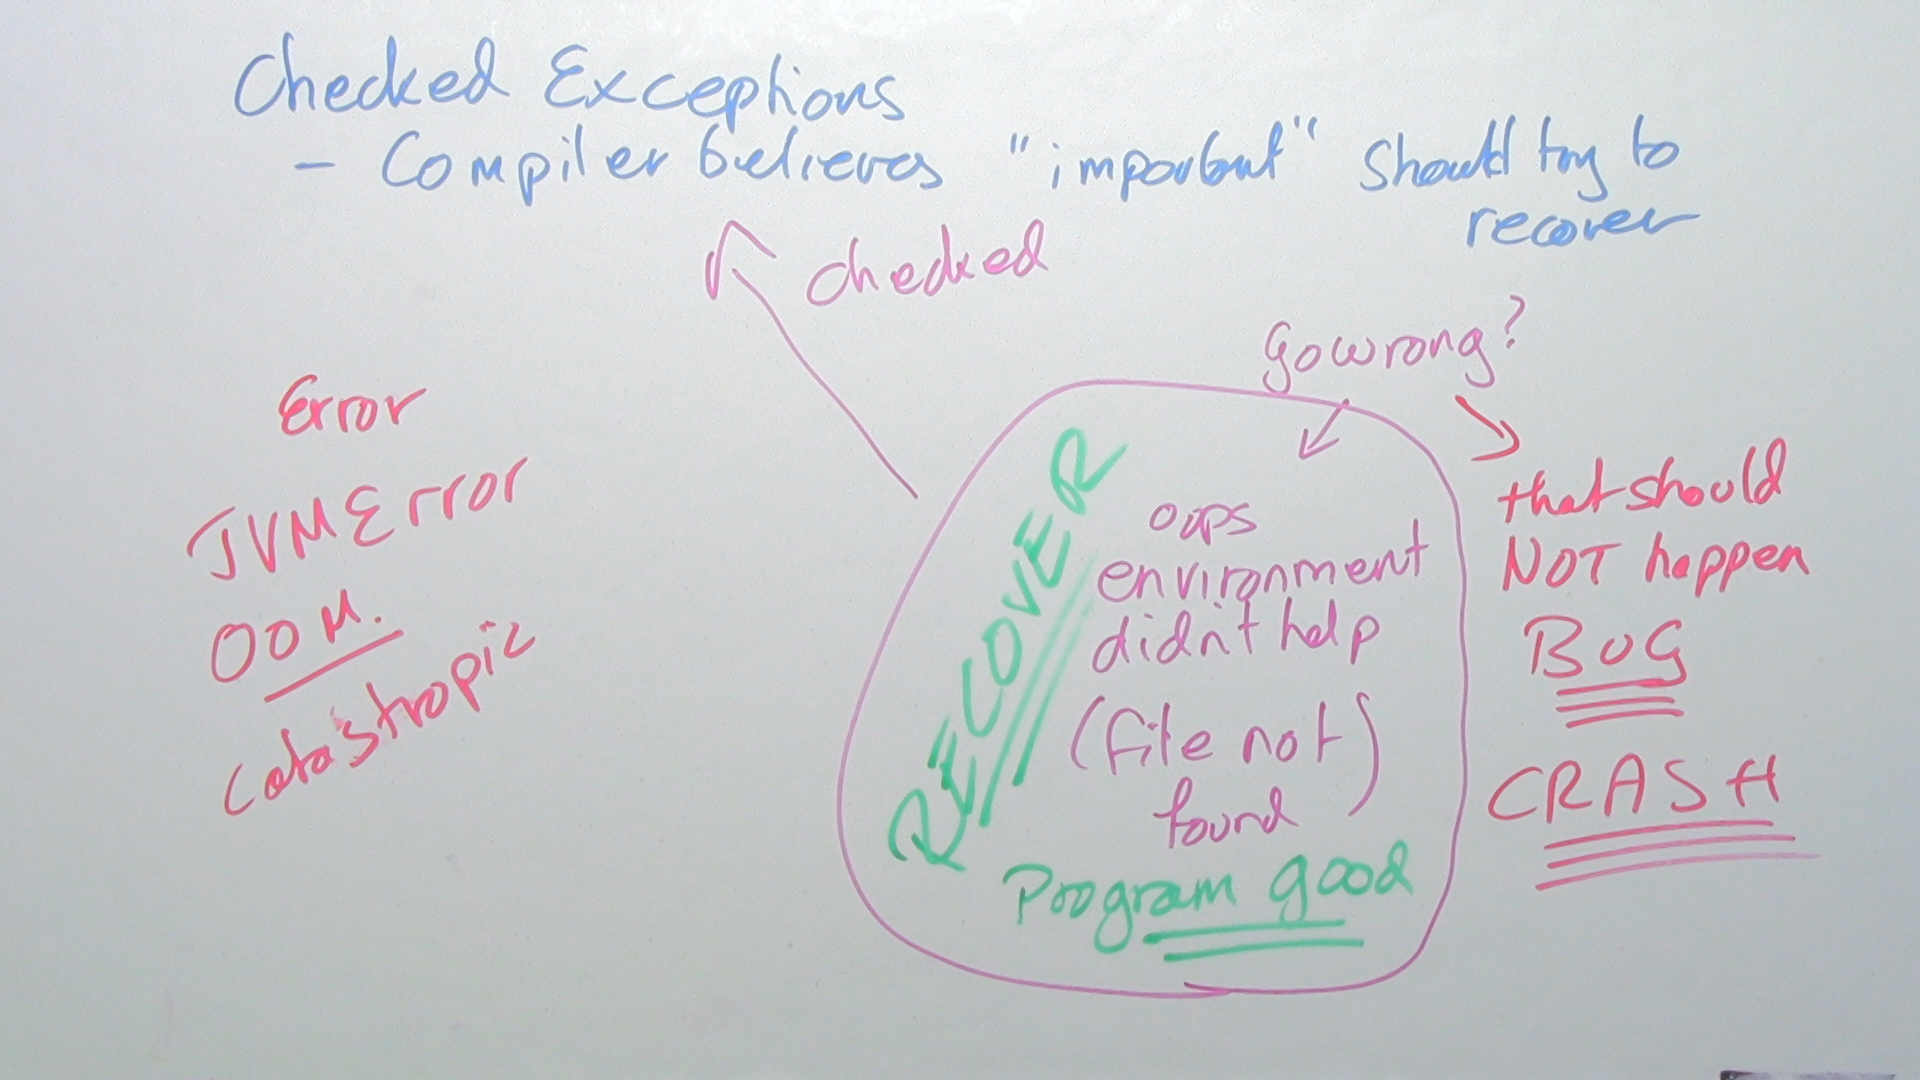 Checked Exceptions
- Compiler believes "important" should try to
recover
checked
go wrong?
Error
JVM Error
OOM.
catastropic
RECOVER
oops
environment
didn't help
(file not)
found
Program good
that should
NOT happen
BUG
CRASH